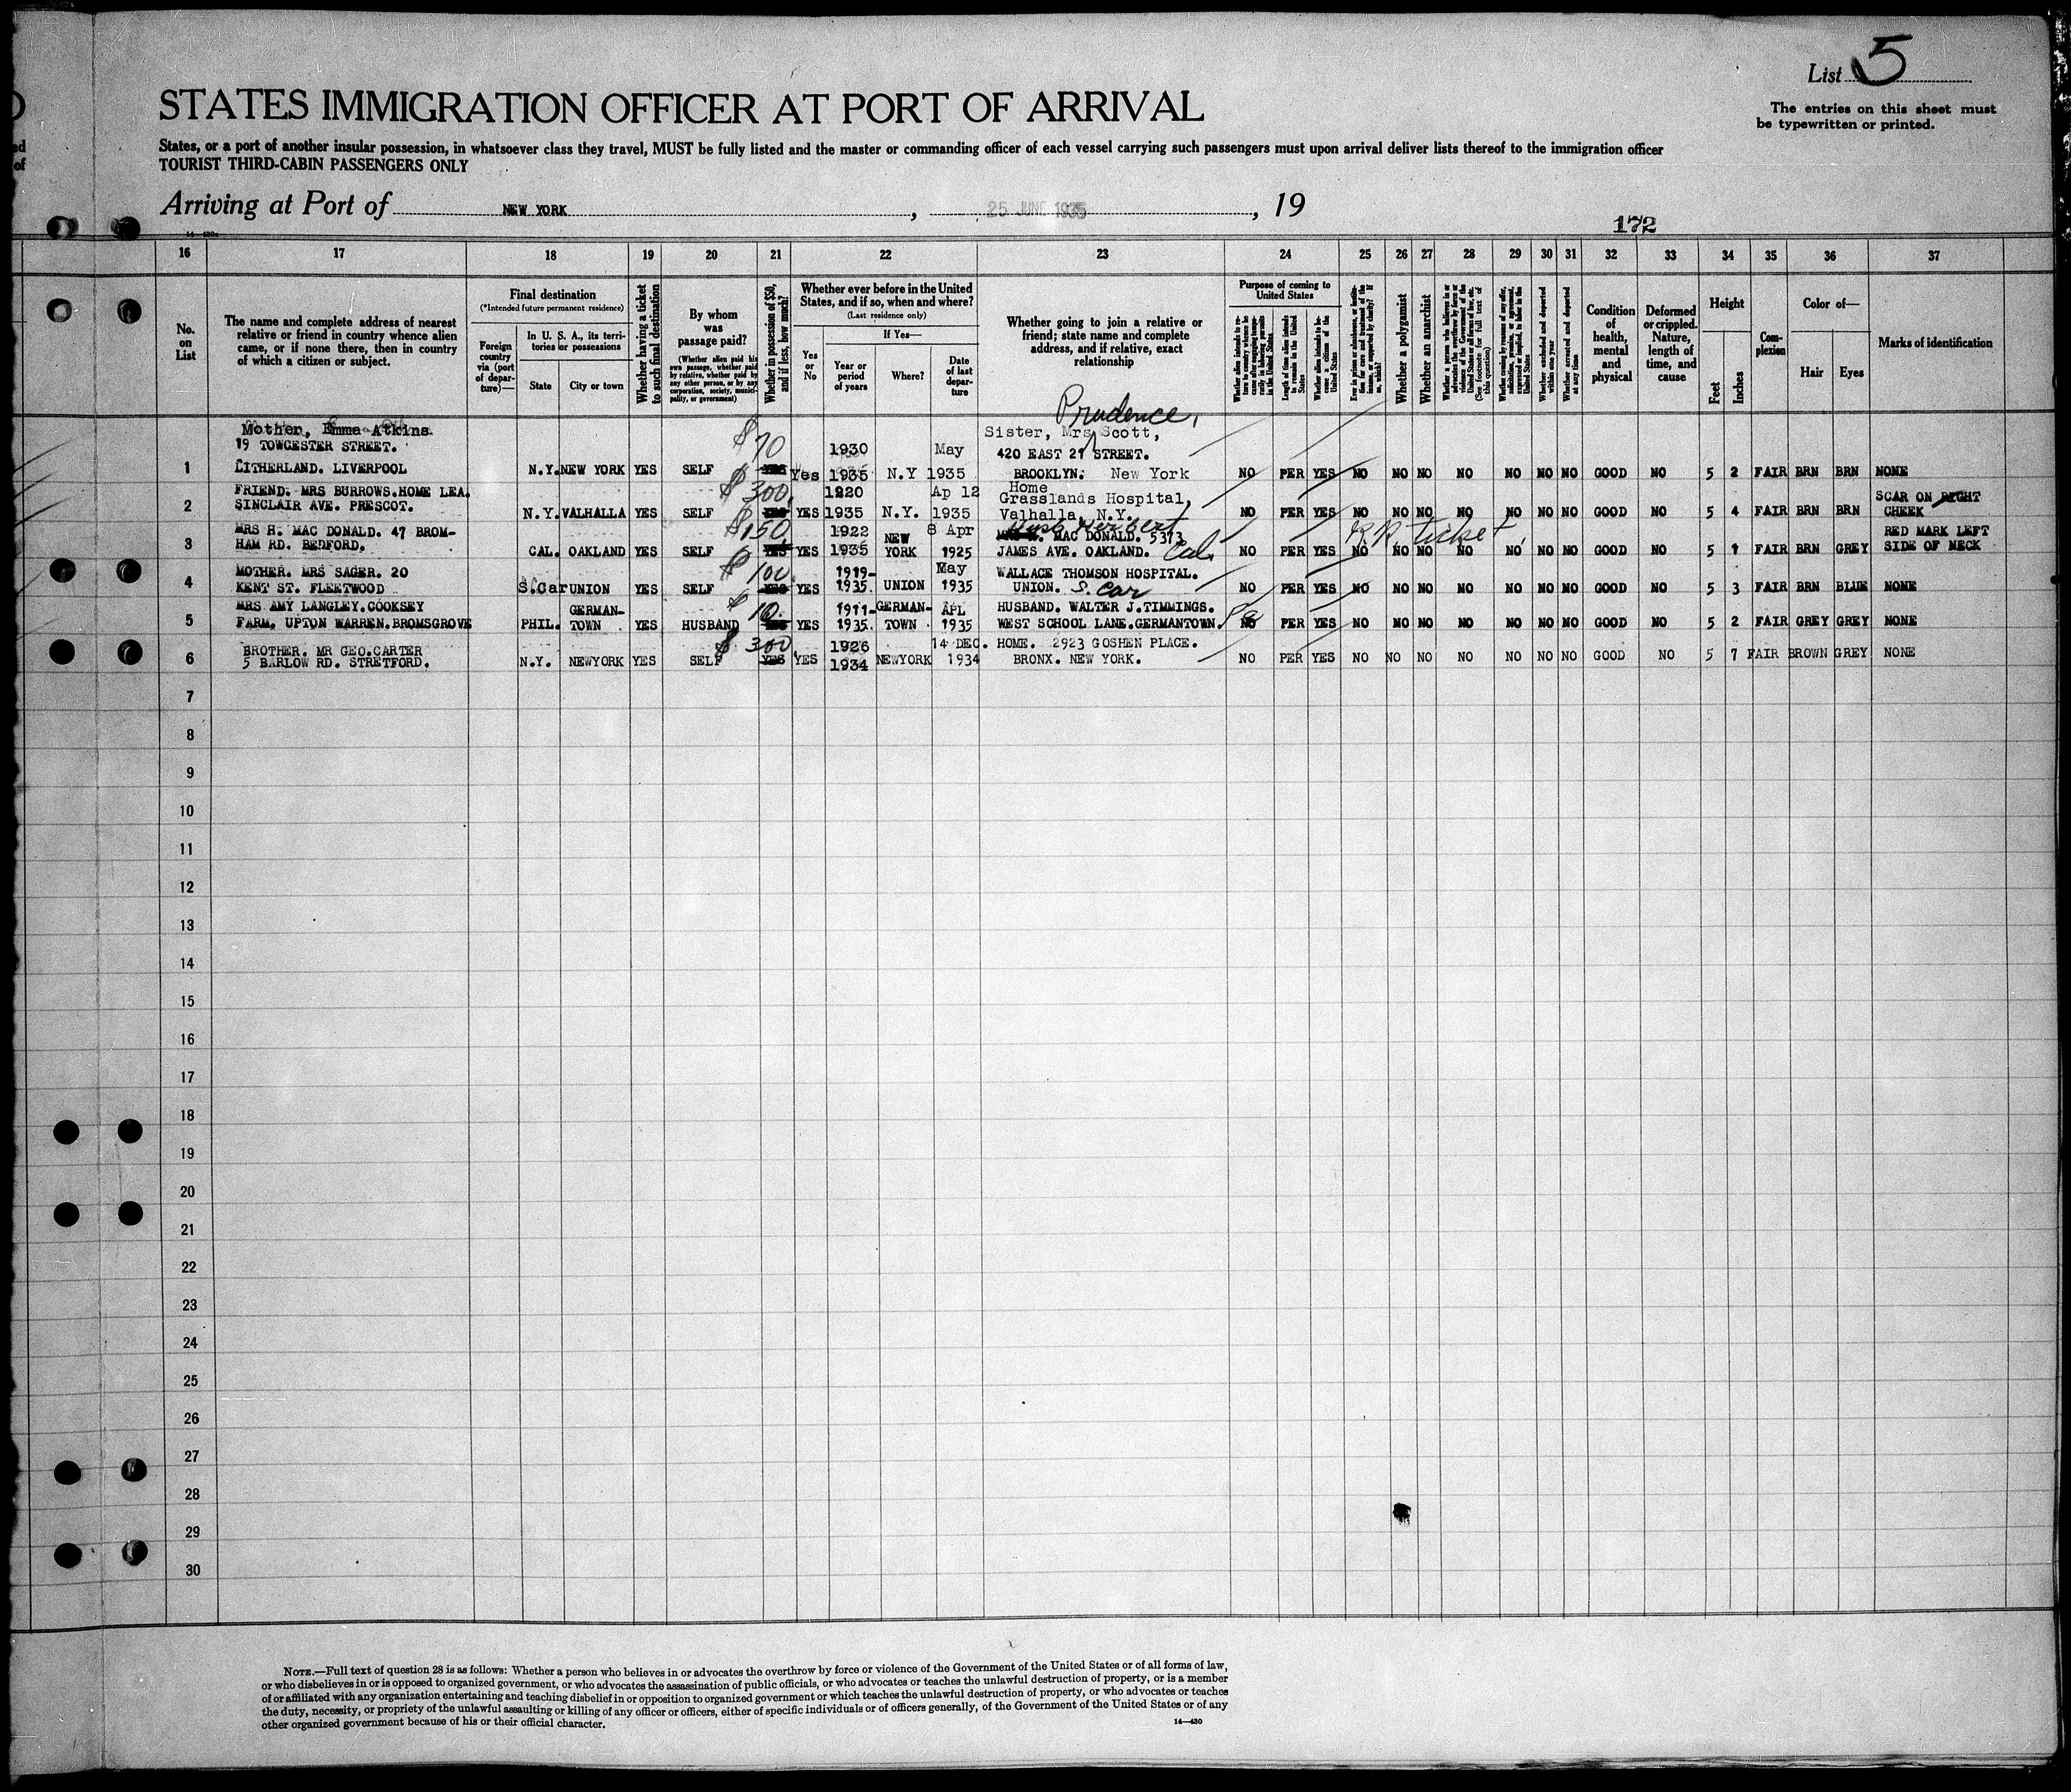 List 5
STATES IMMIGRATION OFFICER AT PORT OF ARRIVAL
The entries on this sheet must
be typewritten or printed.
States, or a port of another insular possession, in whatsoever class they travel, MUST be fully listed and the master or commanding officer of each vessel carrying such passengers must upon arrival deliver lists thereof to the immigration officer
TOURIST THIRD-CABIN PASSENGERS ONLY
Arriving at Port of NEW YORK, 25 JUNE 1935, 19
172
16 17 18 19 20 21 22 23 24 25 26 27 28 29 30 31 32 33 34 35 36 37
No. on List
The name and complete address of nearest
relative or friend in country whence alien
came, or if none there, then in country
of which a citizen or subject.
Final destination
(*Intended future permanent residence)
Foreign country via (port of departure)—
In U. S. A., its territories or possessions
State City or town
Whether having a ticket to such final destination
By whom was passage paid?
(Whether alien paid his own passage, whether paid by relative, whether paid by any other person, or by any corporation, society, municipality, or government)
Whether in possession of $50, and if less, how much?
Whether ever before in the United States, and if so, when and where?
(Last residence only)
Yes or No
If Yes—
Year or period of years
Where?
Date of last departure
Whether going to join a relative or
friend; state name and complete
address, and if relative, exact
relationship
Purpose of coming to United States
Length of time alien intends to remain in the United States
Whether alien intends to become a citizen of the United States
Whether a polygamist
Whether an anarchist
Whether arrested and deported at any time
Condition of health, mental and physical
Deformed or crippled. Nature, length of time, and cause
Height
Feet Inches
Complexion
Color of—
Hair Eyes
Marks of identification
Prudence,
Mother, Emma Atkins Sister, Mrs Scott,
19 TOWCESTER STREET. $70 1930 May 420 EAST 21 STREET.
1 LITHERLAND. LIVERPOOL N.Y. NEW YORK YES SELF YES Yes 1935 N.Y 1935 BROOKLYN. New York NO PER YES NO NO NO NO NO NO NO GOOD NO 5 2 FAIR BRN BRN NONE
FRIEND. MRS BURROWS. HOME LEA. $300 1920 Ap 12 Home Grasslands Hospital, SCAR ON RIGHT
2 SINCLAIR AVE. PRESCOT. N.Y. VALHALLA YES SELF YES YES 1935 N.Y. 1935 Valhalla, N.Y. NO PER YES NO NO NO NO NO NO NO GOOD NO 5 4 FAIR BRN BRN CHEEK
MRS H. MAC DONALD. 47 BROM- $150 1922 NEW 8 Apr Husb Herbert MAC DONALD. 5373 R.R ticket RED MARK LEFT
3 HAM RD. BEDFORD. CAL. OAKLAND YES SELF YES YES 1935 YORK 1925 JAMES AVE. OAKLAND. Cal. NO PER YES NO NO NO NO NO NO NO GOOD NO 5 1 FAIR BRN GREY SIDE OF NECK
MOTHER. MRS SAGER. 20 $100 1919- May WALLACE THOMSON HOSPITAL.
4 KENT ST. FLEETWOOD S.Car UNION YES SELF YES YES 1935. UNION 1935 UNION. S. Car NO PER YES NO NO NO NO NO NO NO GOOD NO 5 3 FAIR BRN BLUE NONE
MRS AMY LANGLEY. COOKSEY GERMAN- $10. 1911- GERMAN- APL HUSBAND. WALTER J. TIMMINGS.
5 FARM, UPTON WARREN. BROMSGROVE PHIL. TOWN YES HUSBAND YES YES 1935. TOWN 1935 WEST SCHOOL LANE. GERMANTOWN. Pa NO PER YES NO NO NO NO NO NO NO GOOD NO 5 2 FAIR GREY GREY NONE
BROTHER. MR GEO. CARTER $300 1926 14 DEC. HOME. 2923 GOSHEN PLACE.
6 5 BARLOW RD. STRETFORD. N.Y. NEWYORK YES SELF YES YES 1934 NEWYORK 1934 BRONX. NEW YORK. NO PER YES NO NO NO NO NO NO NO GOOD NO 5 7 FAIR BROWN GREY NONE
7
8
9
10
11
12
13
14
15
16
17
18
19
20
21
22
23
24
25
26
27
28
29
30
NOTE.—Full text of question 28 is as follows: Whether a person who believes in or advocates the overthrow by force or violence of the Government of the United States or of all forms of law,
or who disbelieves in or is opposed to organized government, or who advocates the assassination of public officials, or who advocates or teaches the unlawful destruction of property, or is a member
of or affiliated with any organization entertaining and teaching disbelief in or opposition to organized government or which teaches the unlawful destruction of property, or who advocates or teaches
the duty, necessity, or propriety of the unlawful assaulting or killing of any officer or officers, either of specific individuals or of officers generally, of the Government of the United States or of any
other organized government because of his or their official character.
14—430